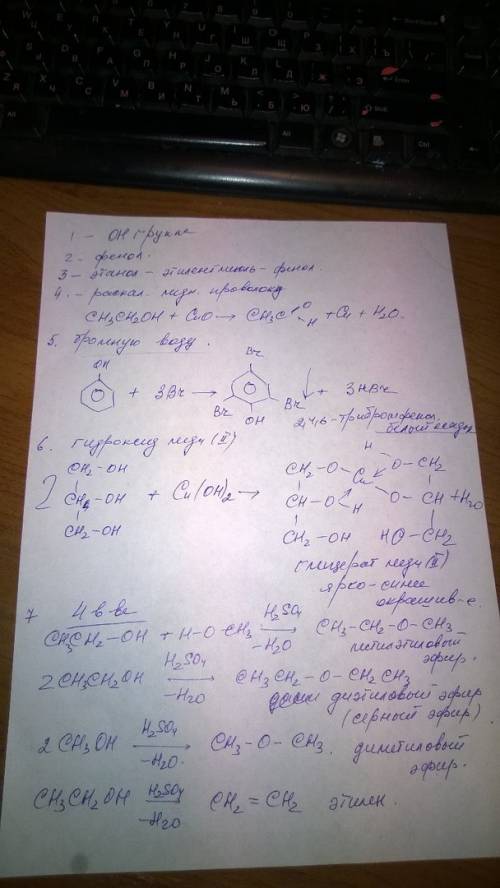 1 – ОН группа
2 – фенол.
3 – этанол – этиленгликоль – фенол.
4. – раскал. медн. проволока
CH3CH2OH + CuO → CH3C O H + Cu + H2O.
5. бромную воду.
OH + 3Br → Br Br Br OH ↓ + 3HBr
2,4,6-трибромфенол,
белый осадок
6. гидроксид меди (II)
2 CH2-OH CH-OH CH2-OH + Cu(OH)2 → CH2-O CH-O H CH2-OH Cu H O-CH2 O-CH HO-CH2 + H2O
глицерат меди (II)
ярко-синее
окрашив-е.
7 4 в-ва
CH3CH2-OH + H-O-CH3 H2SO4 → -H2O CH3-CH2-O-CH3
метилэтиловый
эфир.
2CH3CH2OH H2SO4 → -H2O CH3CH2-O-CH2CH3
диэтиловый эфир
(серный эфир).
2CH3OH H2SO4 → -H2O CH3-O-CH3. диметиловый
эфир.
CH3CH2OH H2SO4 → -H2O CH2=CH2 этилен.